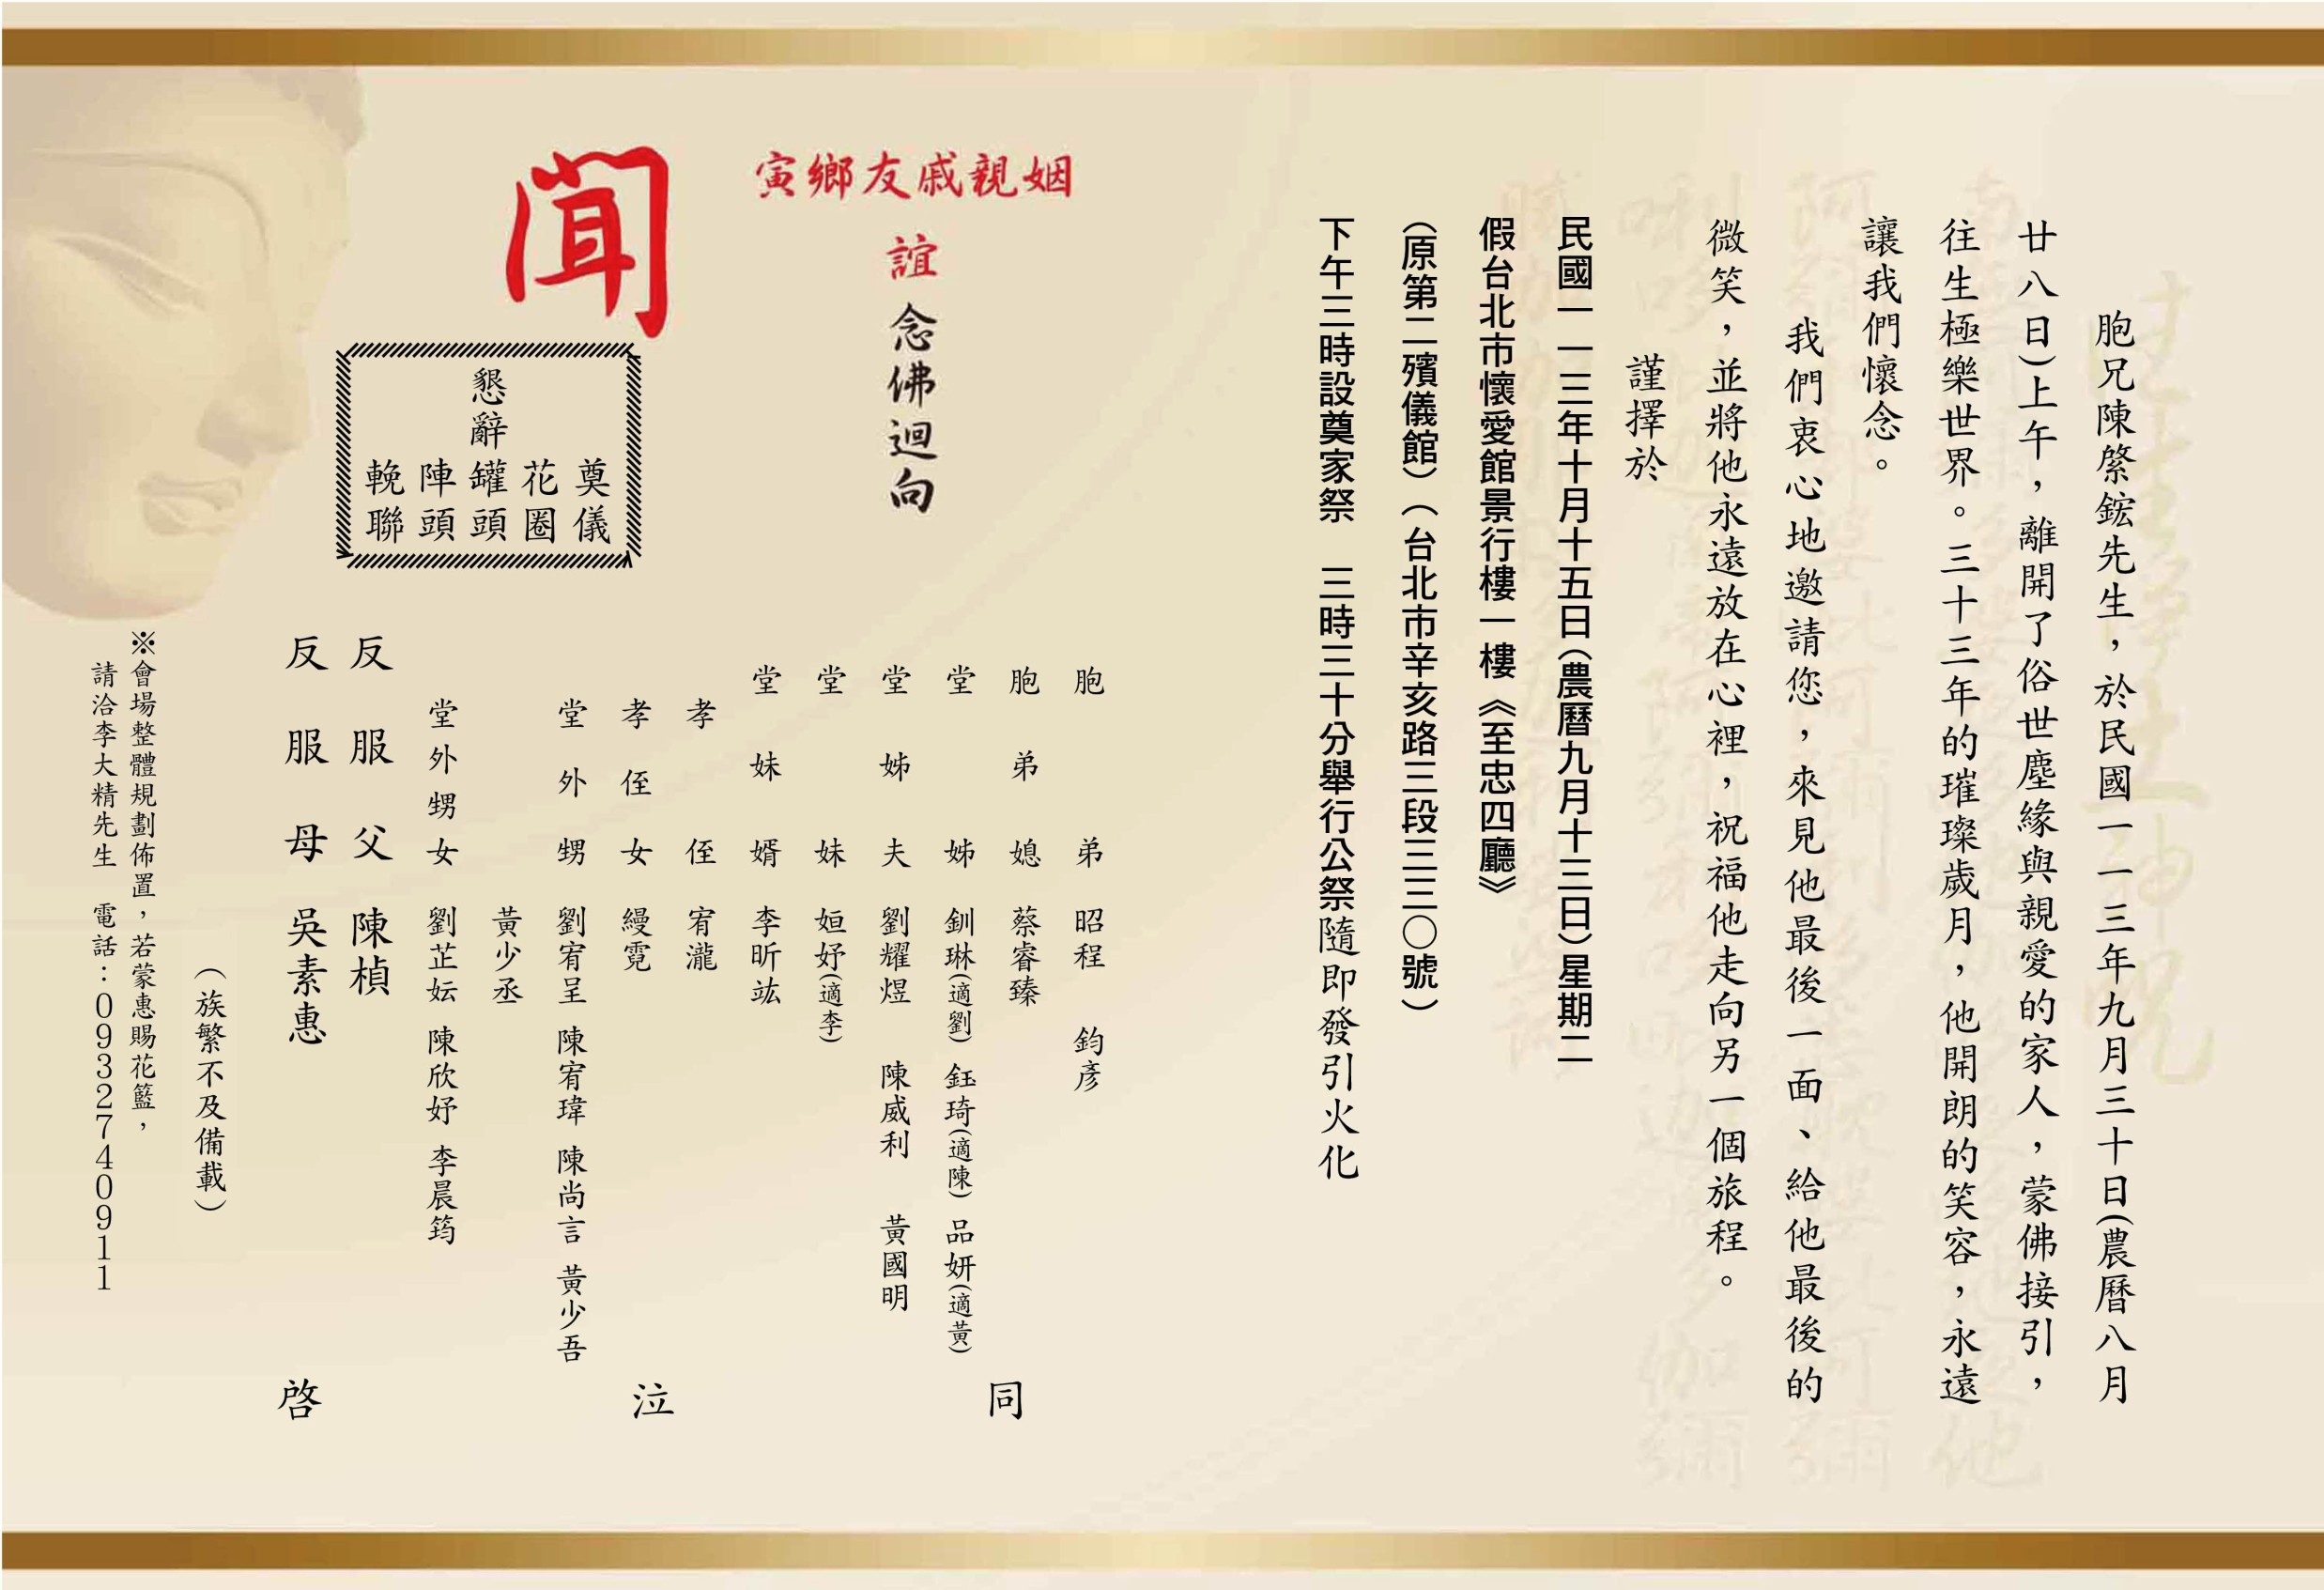 胞兄陳綮鋐先生，於民國一一三年九月三十日(農曆八月
廿八日)上午，離開了俗世塵緣與親愛的家人，蒙佛接引，
往生極樂世界。三十三年的璀璨歲月，他開朗的笑容，永遠
讓我們懷念。
我們衷心地邀請您，來見他最後一面、給他最後的
微笑，並將他永遠放在心裡，祝福他走向另一個旅程。
謹擇於
民國一一三年十月十五日(農曆九月十三日)星期二
假台北市懷愛館景行樓一樓《至忠四廳》
(原第二殯儀館)(台北市辛亥路三段三三○號)
下午三時設奠家祭　三時三十分舉行公祭隨即發引火化
寅鄉友戚親姻
誼
念佛迴向
聞
懇辭
奠儀
花圈
罐頭
陣頭
輓聯
胞弟 昭程 鈞彥
胞弟媳 蔡睿臻
堂姊 釧琳(適劉) 鈺琦(適陳) 品妍(適黃)
堂姊夫 劉耀煜 陳威利 黃國明
堂妹 姮妤(適李)
堂妹婿 李昕竑
孝侄 宥瀧
孝侄女 縵霓
堂外甥 劉宥呈 陳宥瑋 陳尚言 黃少吾
黃少丞
堂外甥女 劉芷妘 陳欣妤 李晨筠
反服父 陳楨
反服母 吳素惠
同
泣
啓
(族繁不及備載)
※會場整體規劃佈置，若蒙惠賜花籃，
請洽李大精先生　電話：0932740911